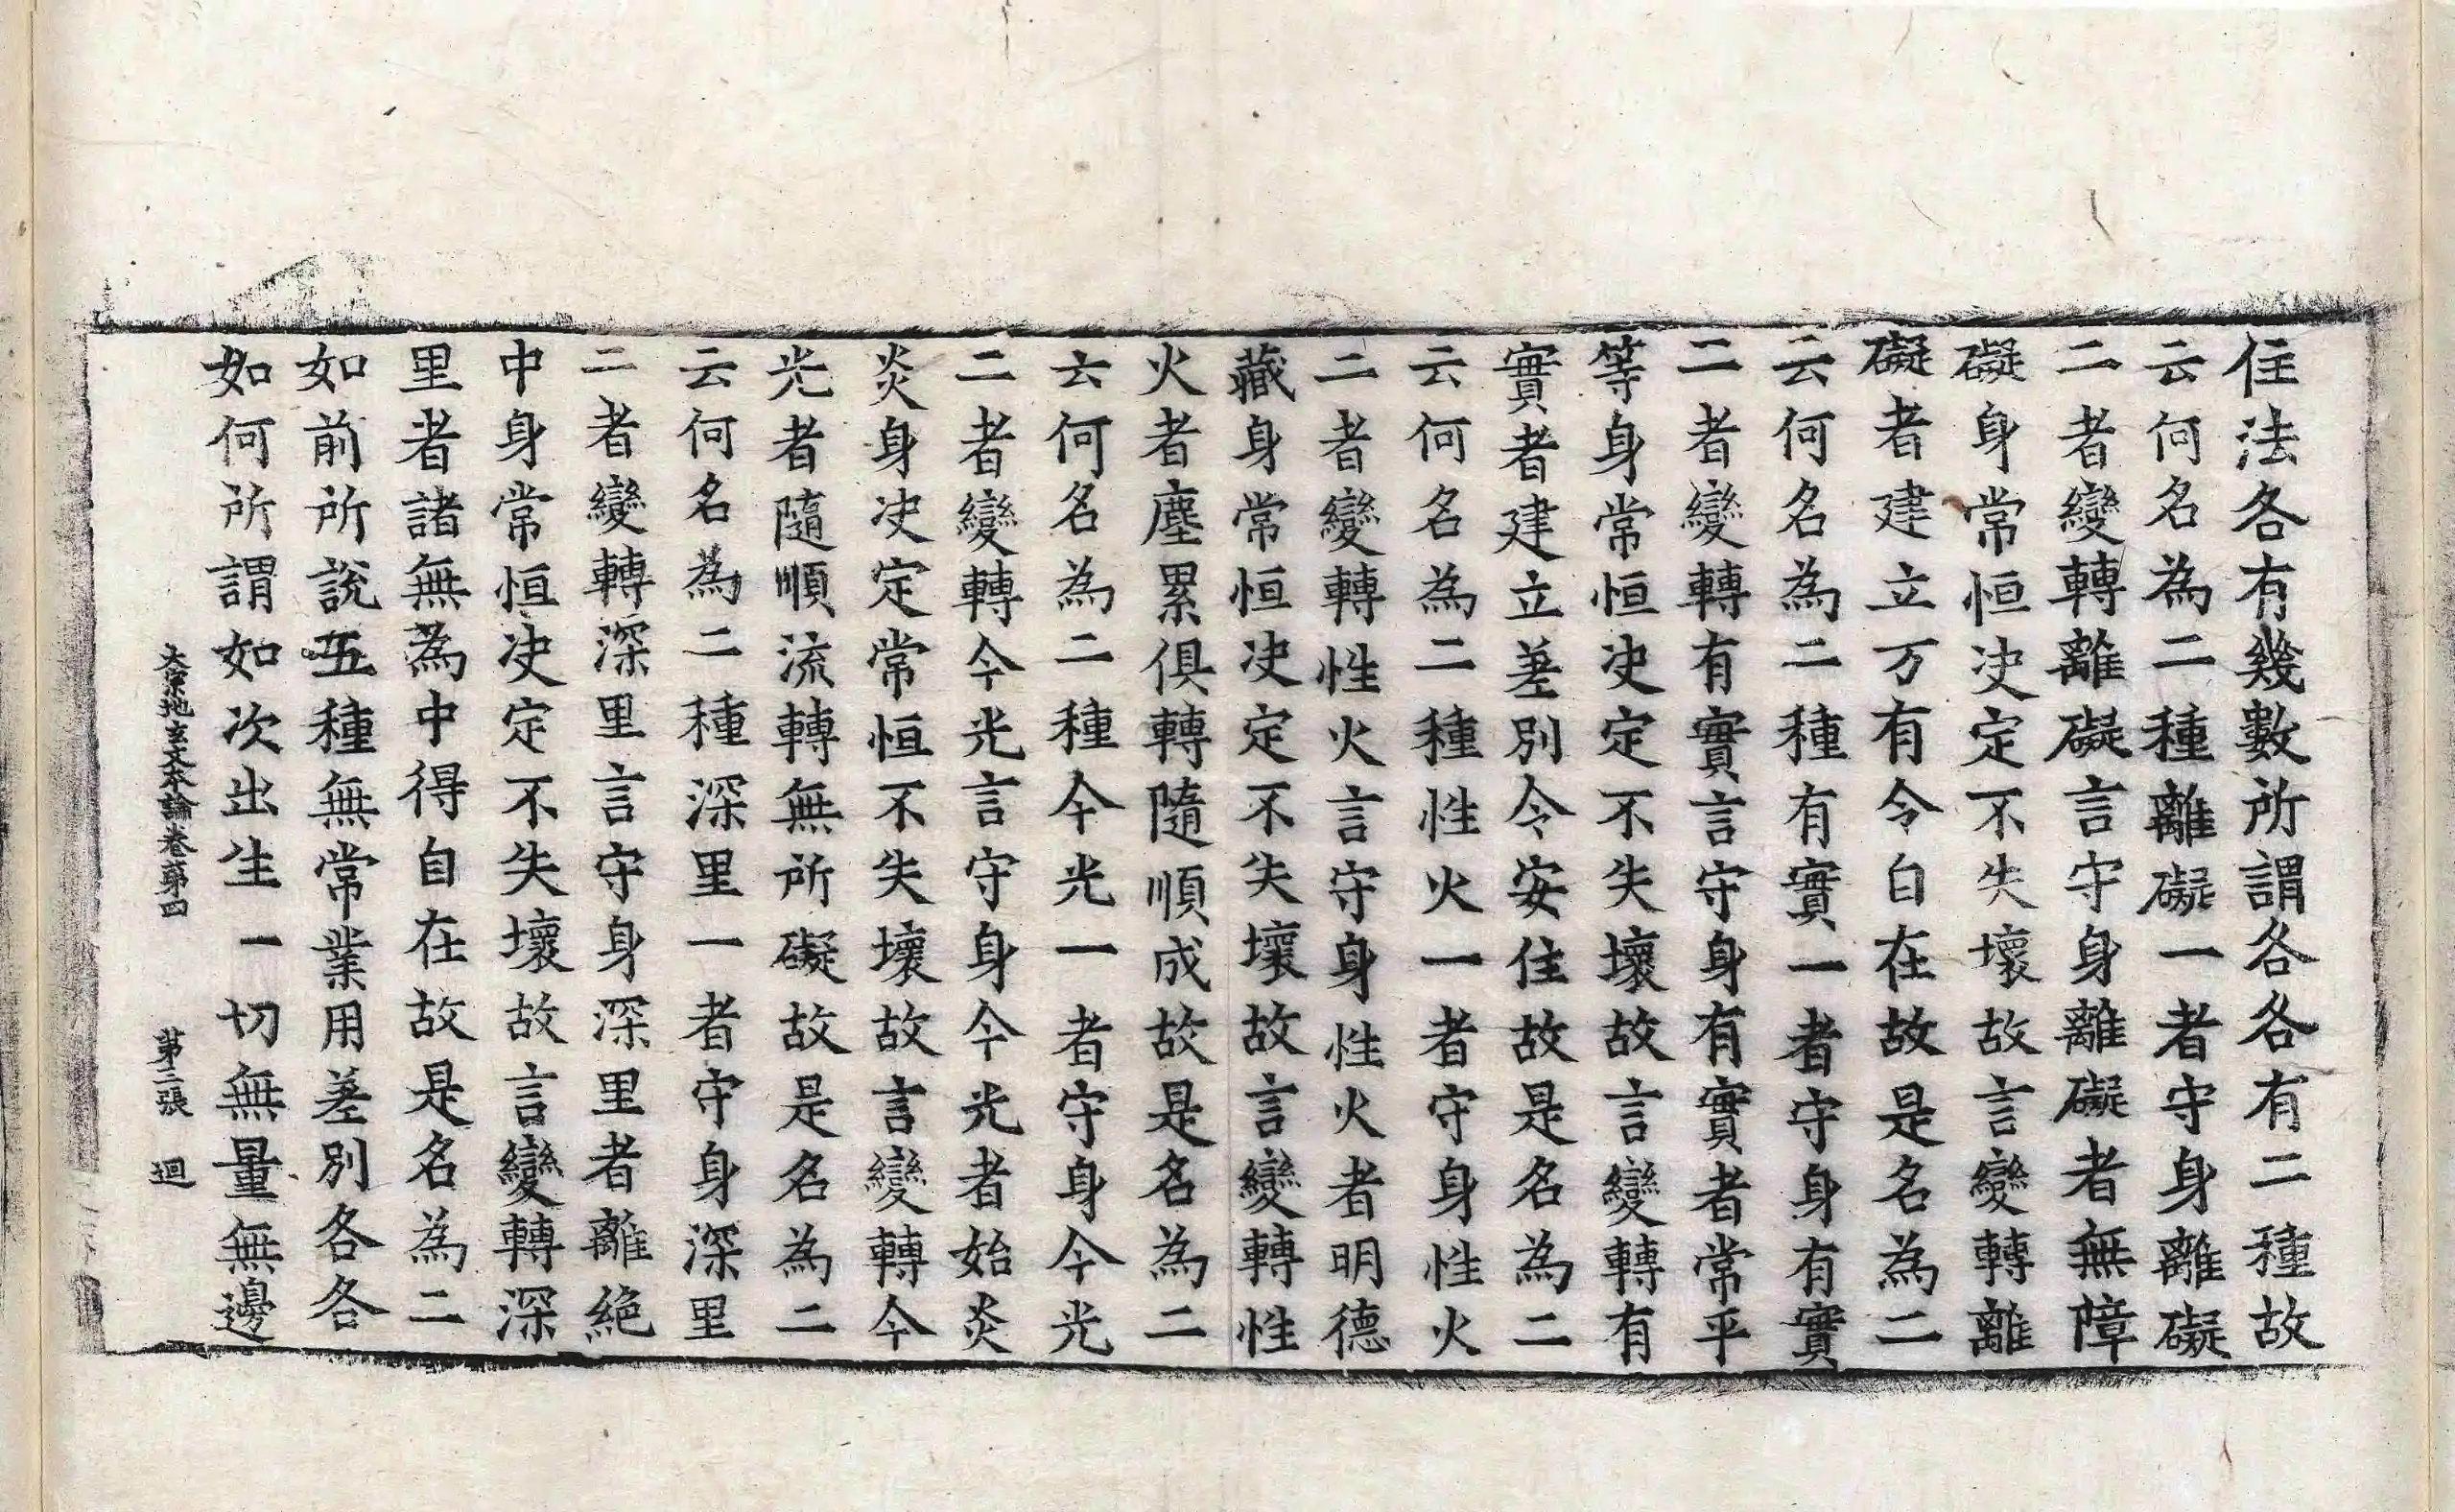 住法各有幾數所謂各各有二種故
云何名為二種離礙一者守身離礙
二者變轉離礙言守身離礙者無障
礙身常恒决定不失壞故言變轉離
礙者建立万有令自在故是名為二
云何名為二種有實一者守身有實
二者變轉有實言守身有實者常平
等身常恒决定不失壞故言變轉有
實者建立差別令安住故是名為二
云何名為二種性火一者守身性火
二者變轉性火言守身性火者明德
藏身常恒决定不失壞故言變轉性
火者塵累俱轉隨順成故是名為二
云何名為二種今光一者守身今光
二者變轉今光言守身今光者始炎
炎身决定常恒不失壞故言變轉今
光者隨順流轉無所礙故是名為二
云何名為二種深里一者守身深里
二者變轉深里言守身深里者離絶
中身常恒决定不失壞故言變轉深
里者諸無為中得自在故是名為二
如前所說五種無常業用差別各各
如何所謂如次出生一切無量無邊
大宗地玄文本論卷第四 第二張 迴